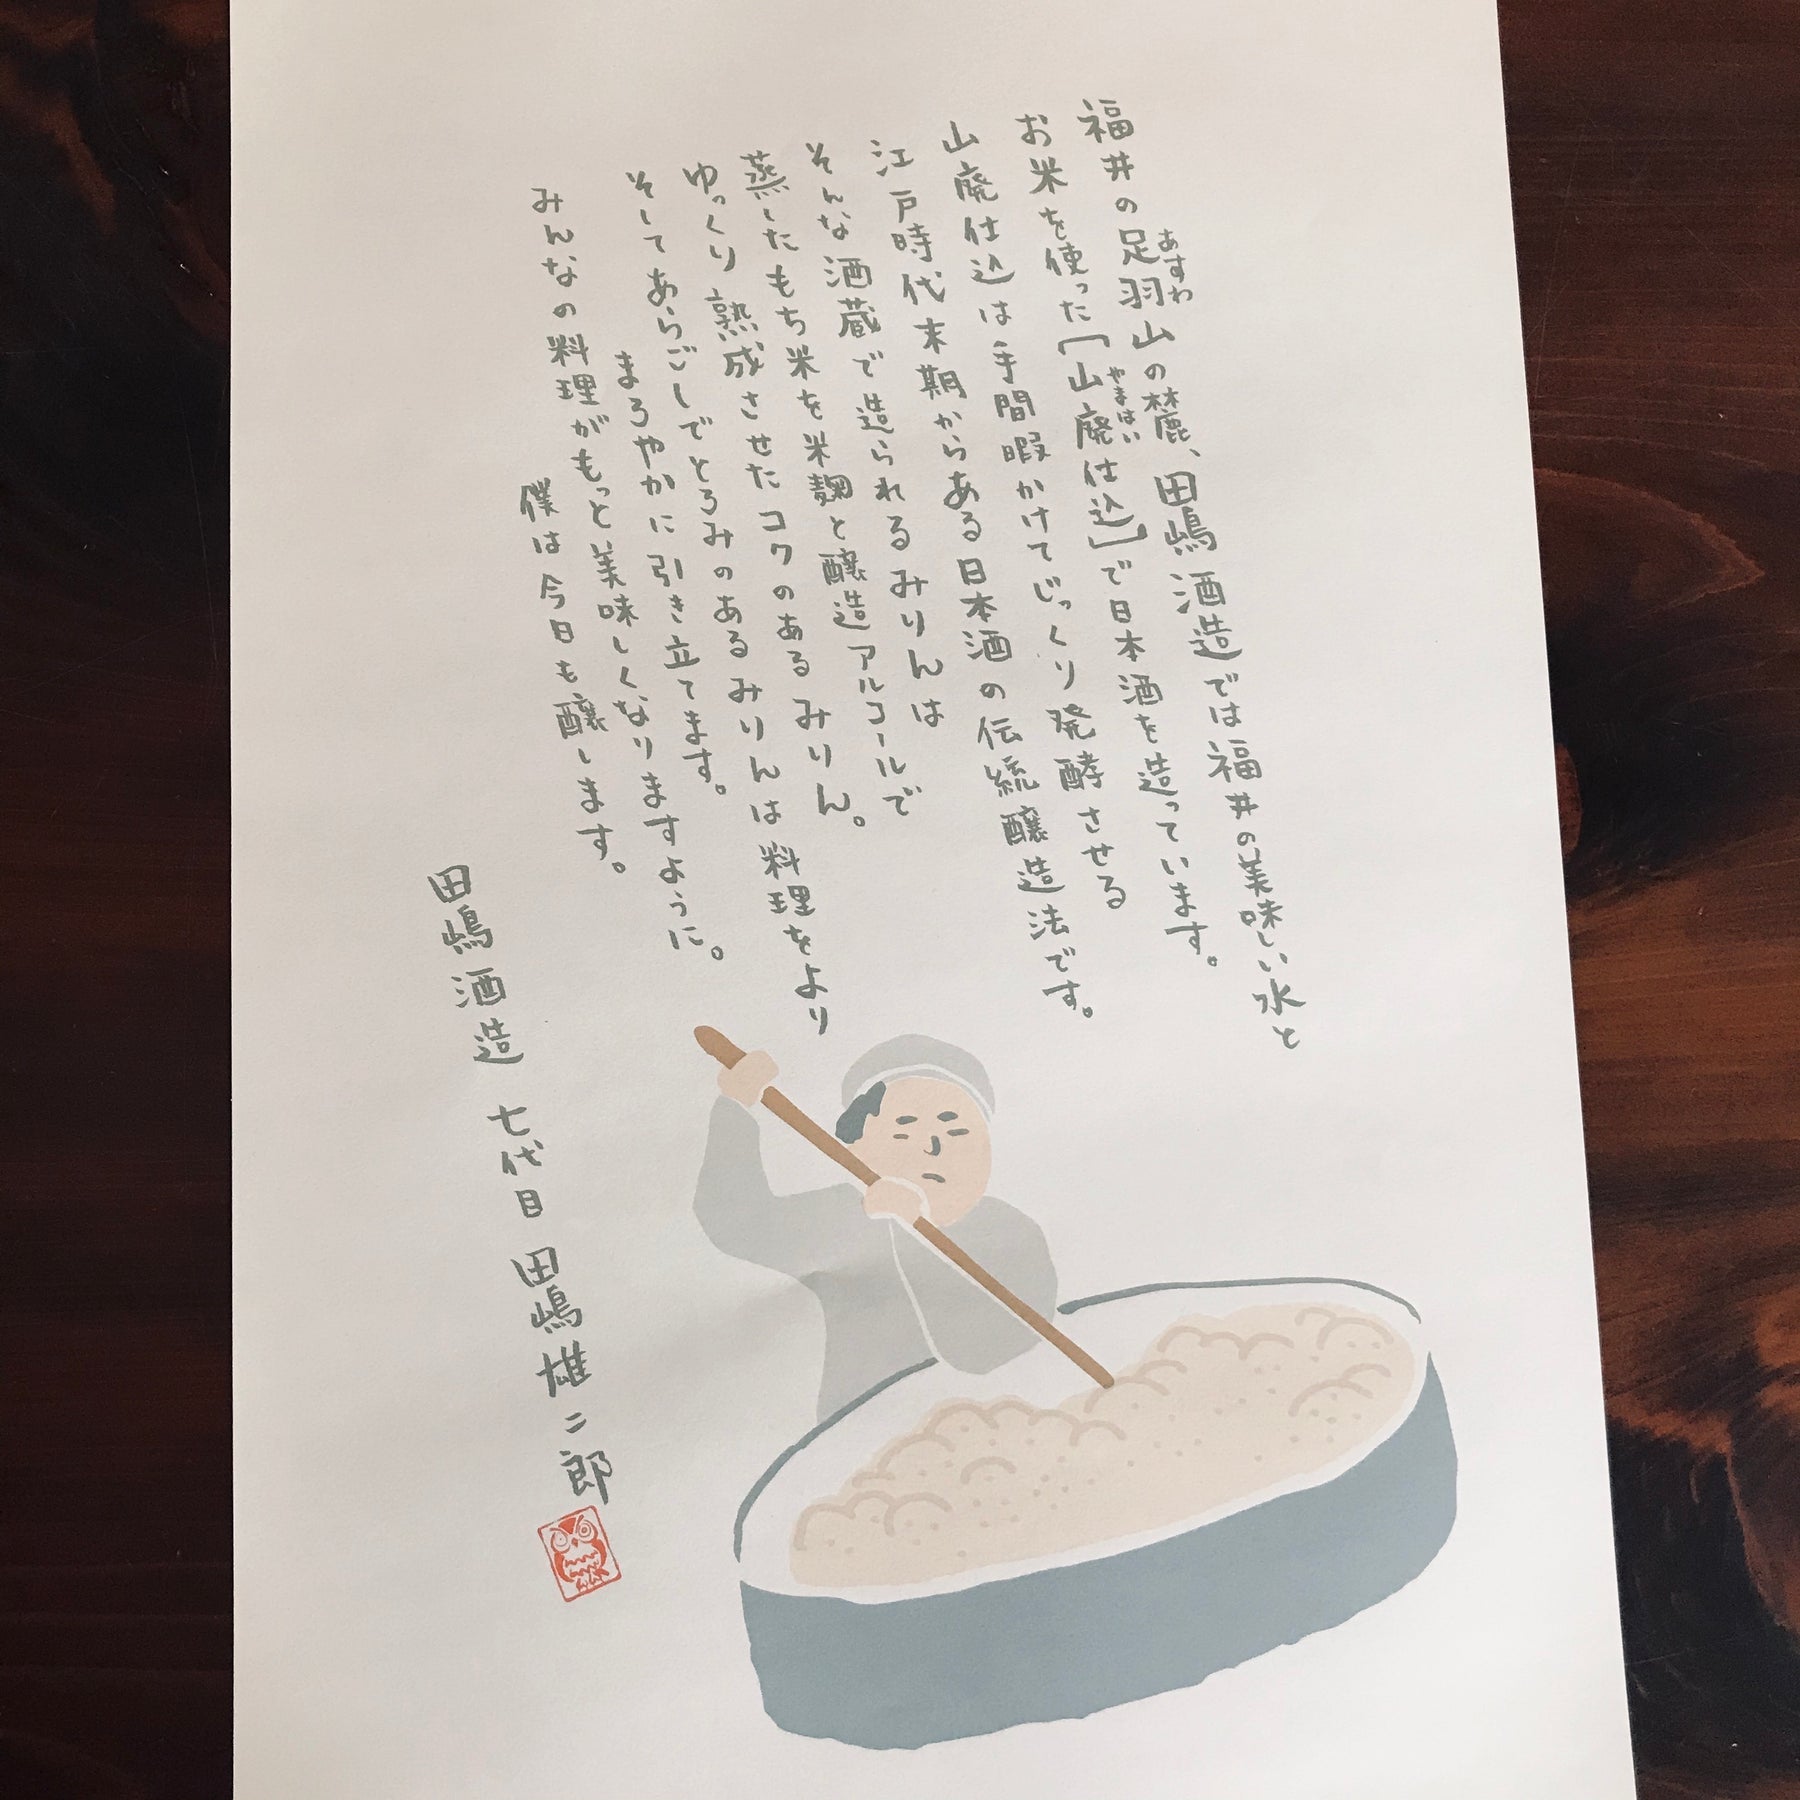 福井の足羽山の麓、田嶋酒造では福井の美味しい水と
あすわ
お米を使った「山廃仕込」で日本酒を造っています。
やまはい
山廃仕込は手間暇かけてじっくり発酵させる
江戸時代末期からある日本酒の伝統醸造法です。
そんな酒蔵で造られるみりんは
蒸したもち米を米麹と醸造アルコールで
ゆっくり熟成させたコクのあるみりん。
そしてあらごしでとろみのあるみりんは料理をより
まろやかに引き立てます。
みんなの料理がもっと美味しくなりますように。
僕は今日も醸します。
田嶋酒造 七代目 田嶋雄二郎